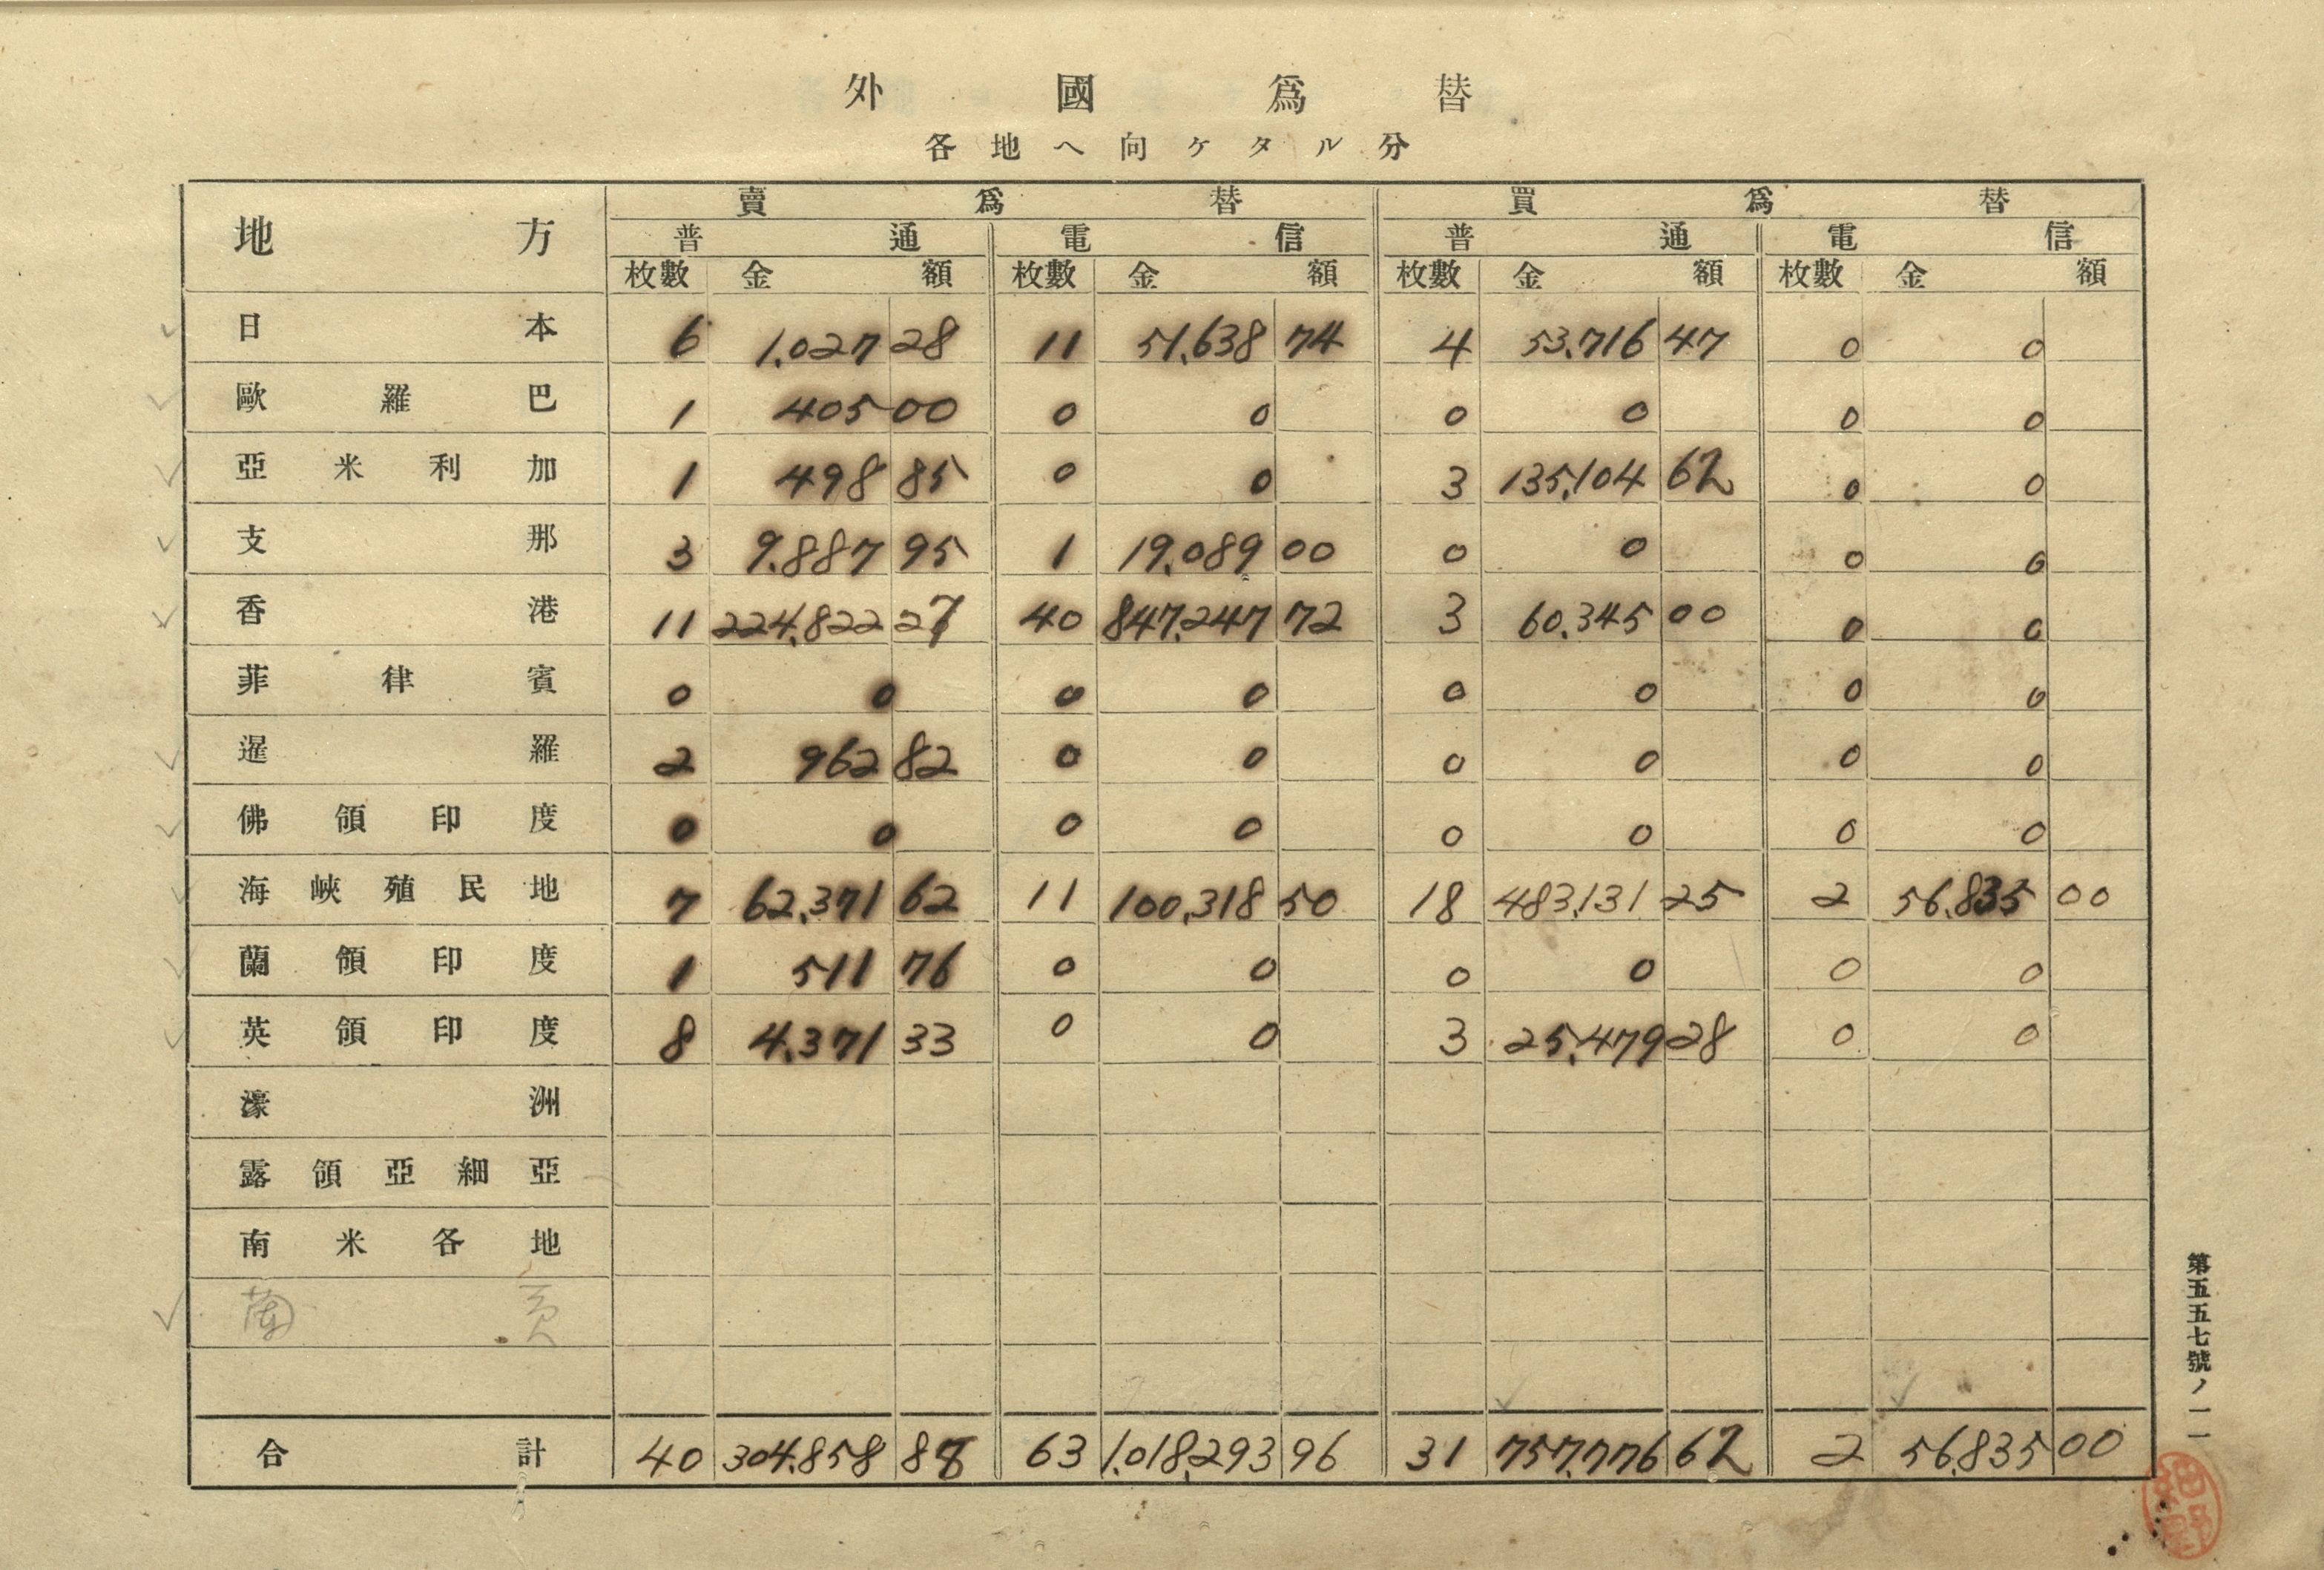 外國爲替
各地へ向ケタル分
地方 賣爲替 買爲替
普通 電信 普通 電信
枚數 金額 枚數 金額 枚數 金額 枚數 金額
日本 6 1,027 28 11 51,638 74 4 53,716 47 0 0
歐羅巴 1 405 00 0 0 0 0 0 0
亞米利加 1 498 85 0 0 3 135,104 62 0 0
支那 3 9,887 95 1 19,089 00 0 0 0 0
香港 11 224,822 27 40 847,247 72 3 60,345 00 0 0
菲律賓 0 0 0 0 0 0 0 0
暹羅 2 962 82 0 0 0 0 0 0
佛領印度 0 0 0 0 0 0 0 0
海峽殖民地 7 62,371 62 11 100,318 50 18 483,131 25 2 56,835 00
蘭領印度 1 511 76 0 0 0 0 0 0
英領印度 8 4,371 33 0 0 3 25,479 28 0 0
濠洲
露領亞細亞
南米各地
蘭貢
合計 40 304,858 88 63 1,018,293 96 31 757,776 62 2 56,835 00
第五五七號ノ一一